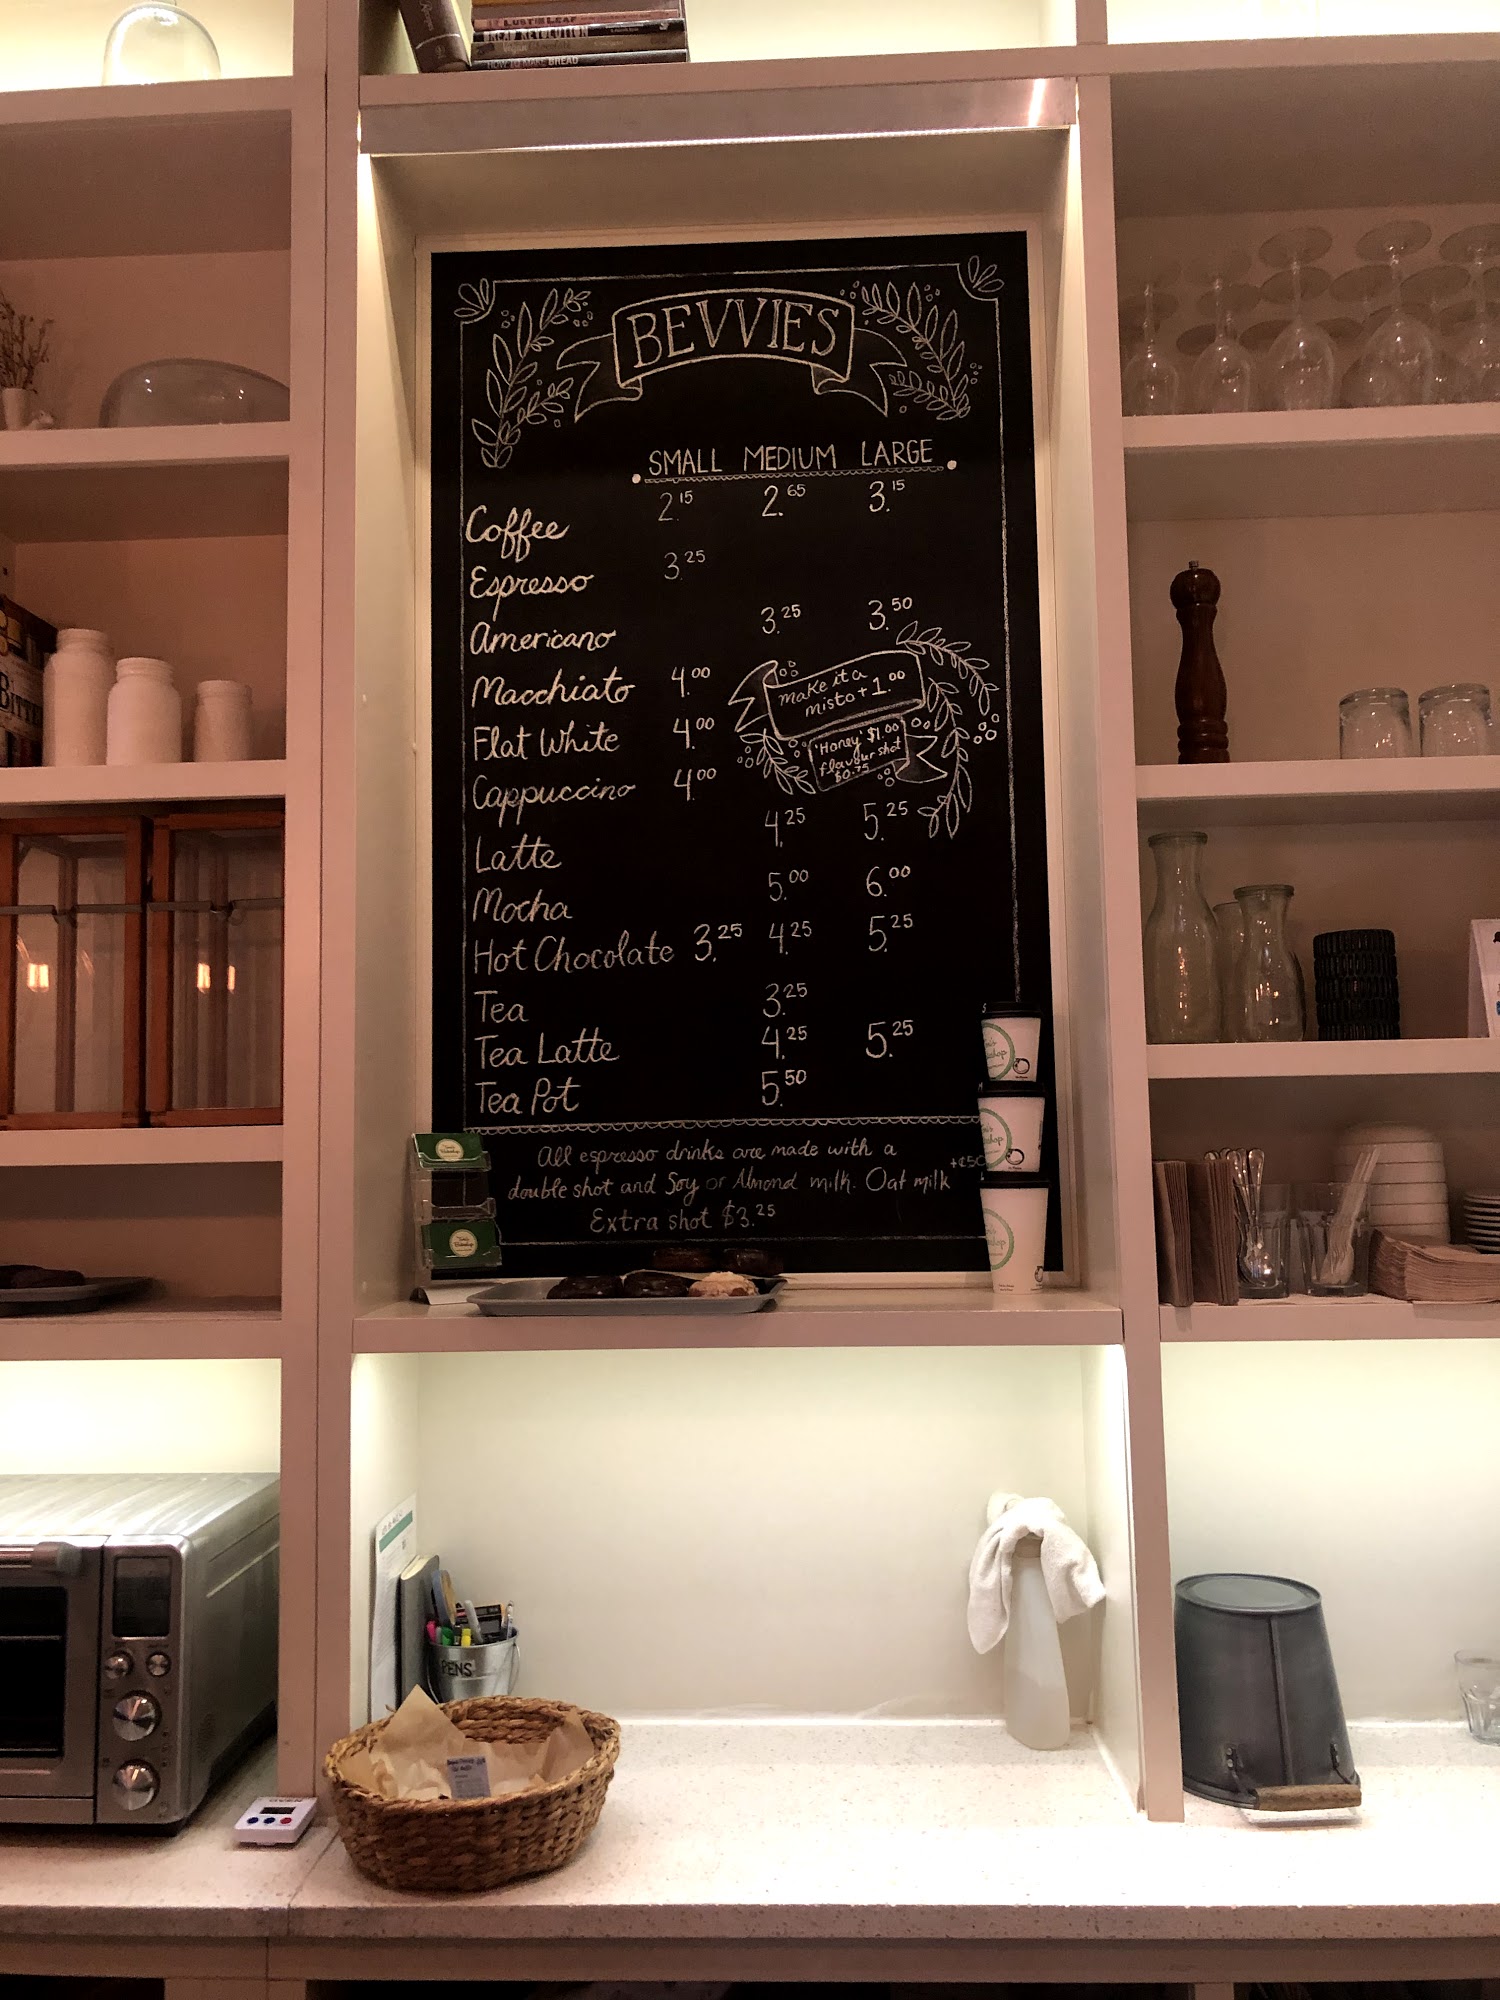 LUST FOR LEAF
BREAD REVOLUTION
Vegan Chocolate
HOW TO MAKE BREAD
BEVVIES
SMALL MEDIUM LARGE
Coffee 2.15 2.65 3.15
Espresso 3.25
Americano 3.25 3.50
Macchiato 4.00
make it a
misto + 1.00
Flat White 4.00
'Honey' $1.00
flavour shot
$0.75
Cappuccino 4.00
Latte 4.25 5.25
Mocha 5.00 6.00
Hot Chocolate 3.25 4.25 5.25
Tea 3.25
Tea Latte 4.25 5.25
Tea Pot 5.50
All espresso drinks are made with a
double shot and Soy or Almond milk. Oat milk
Extra shot $3.25
BITTE
PENS
OVEN